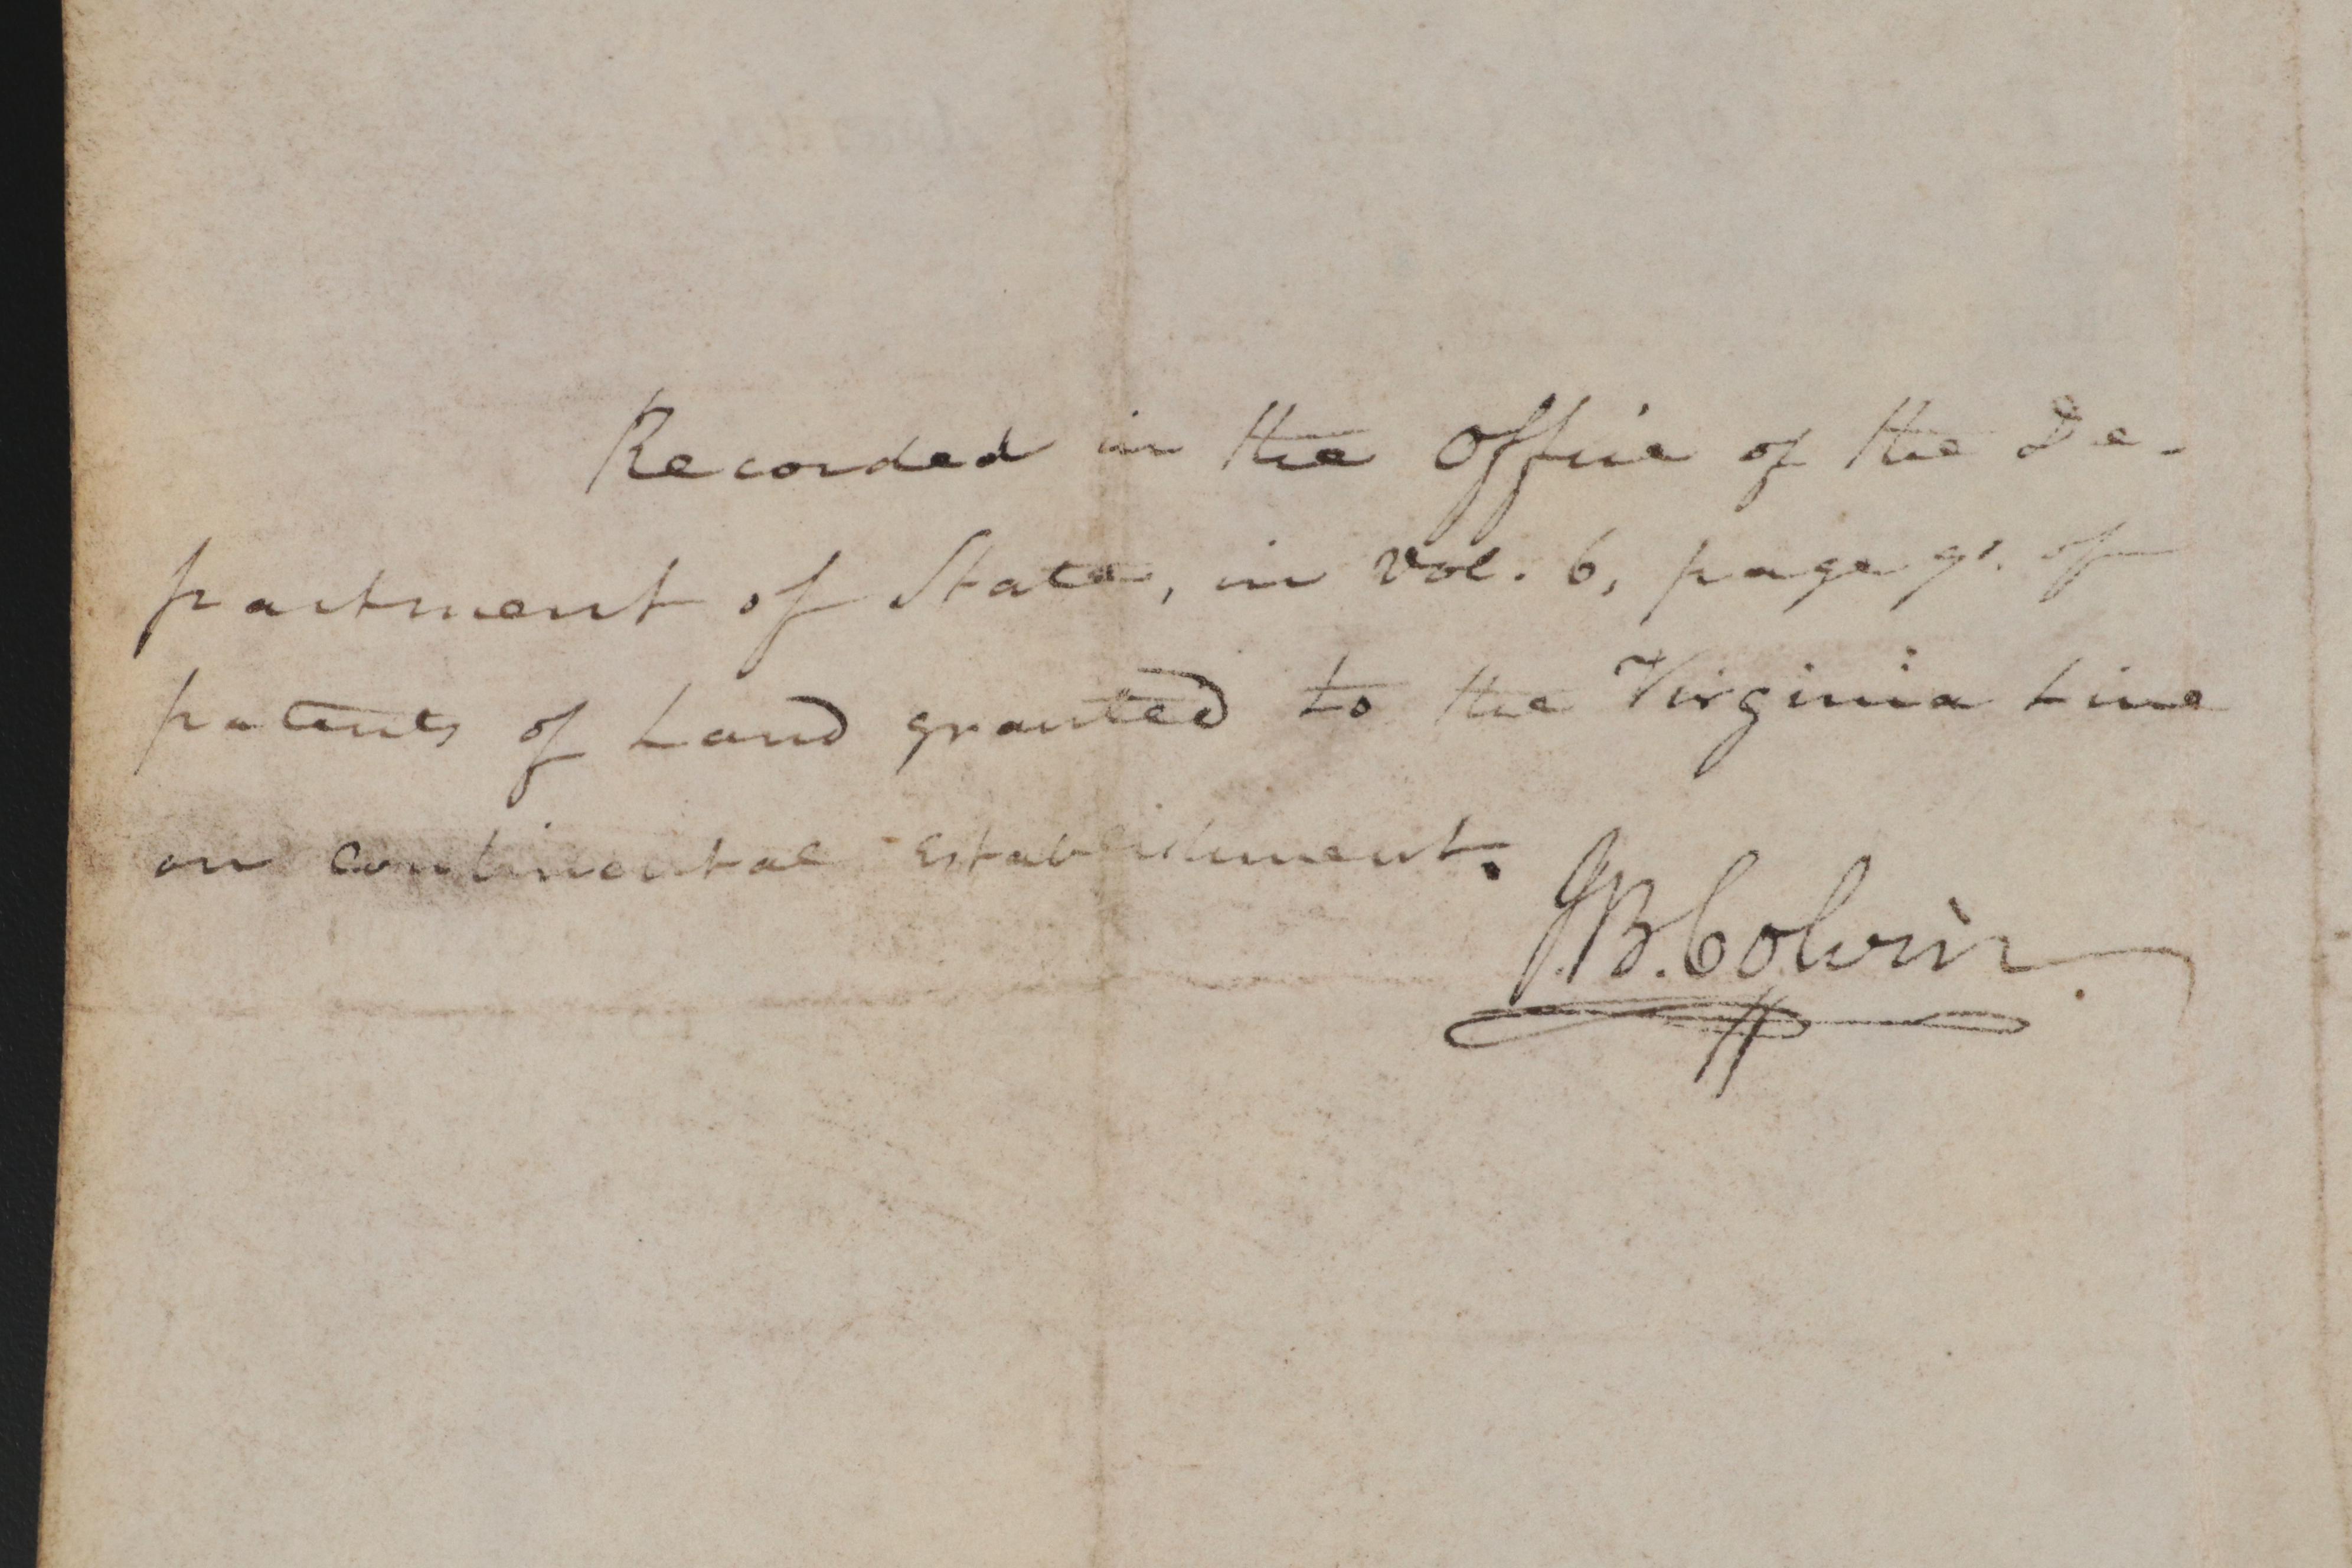 Recorded in the Office of the De-
partment of State, in Vol. 6, page 91. of
patents of Land granted to the Virginia Line
on Continental Establishment.
J.B. Colvin.